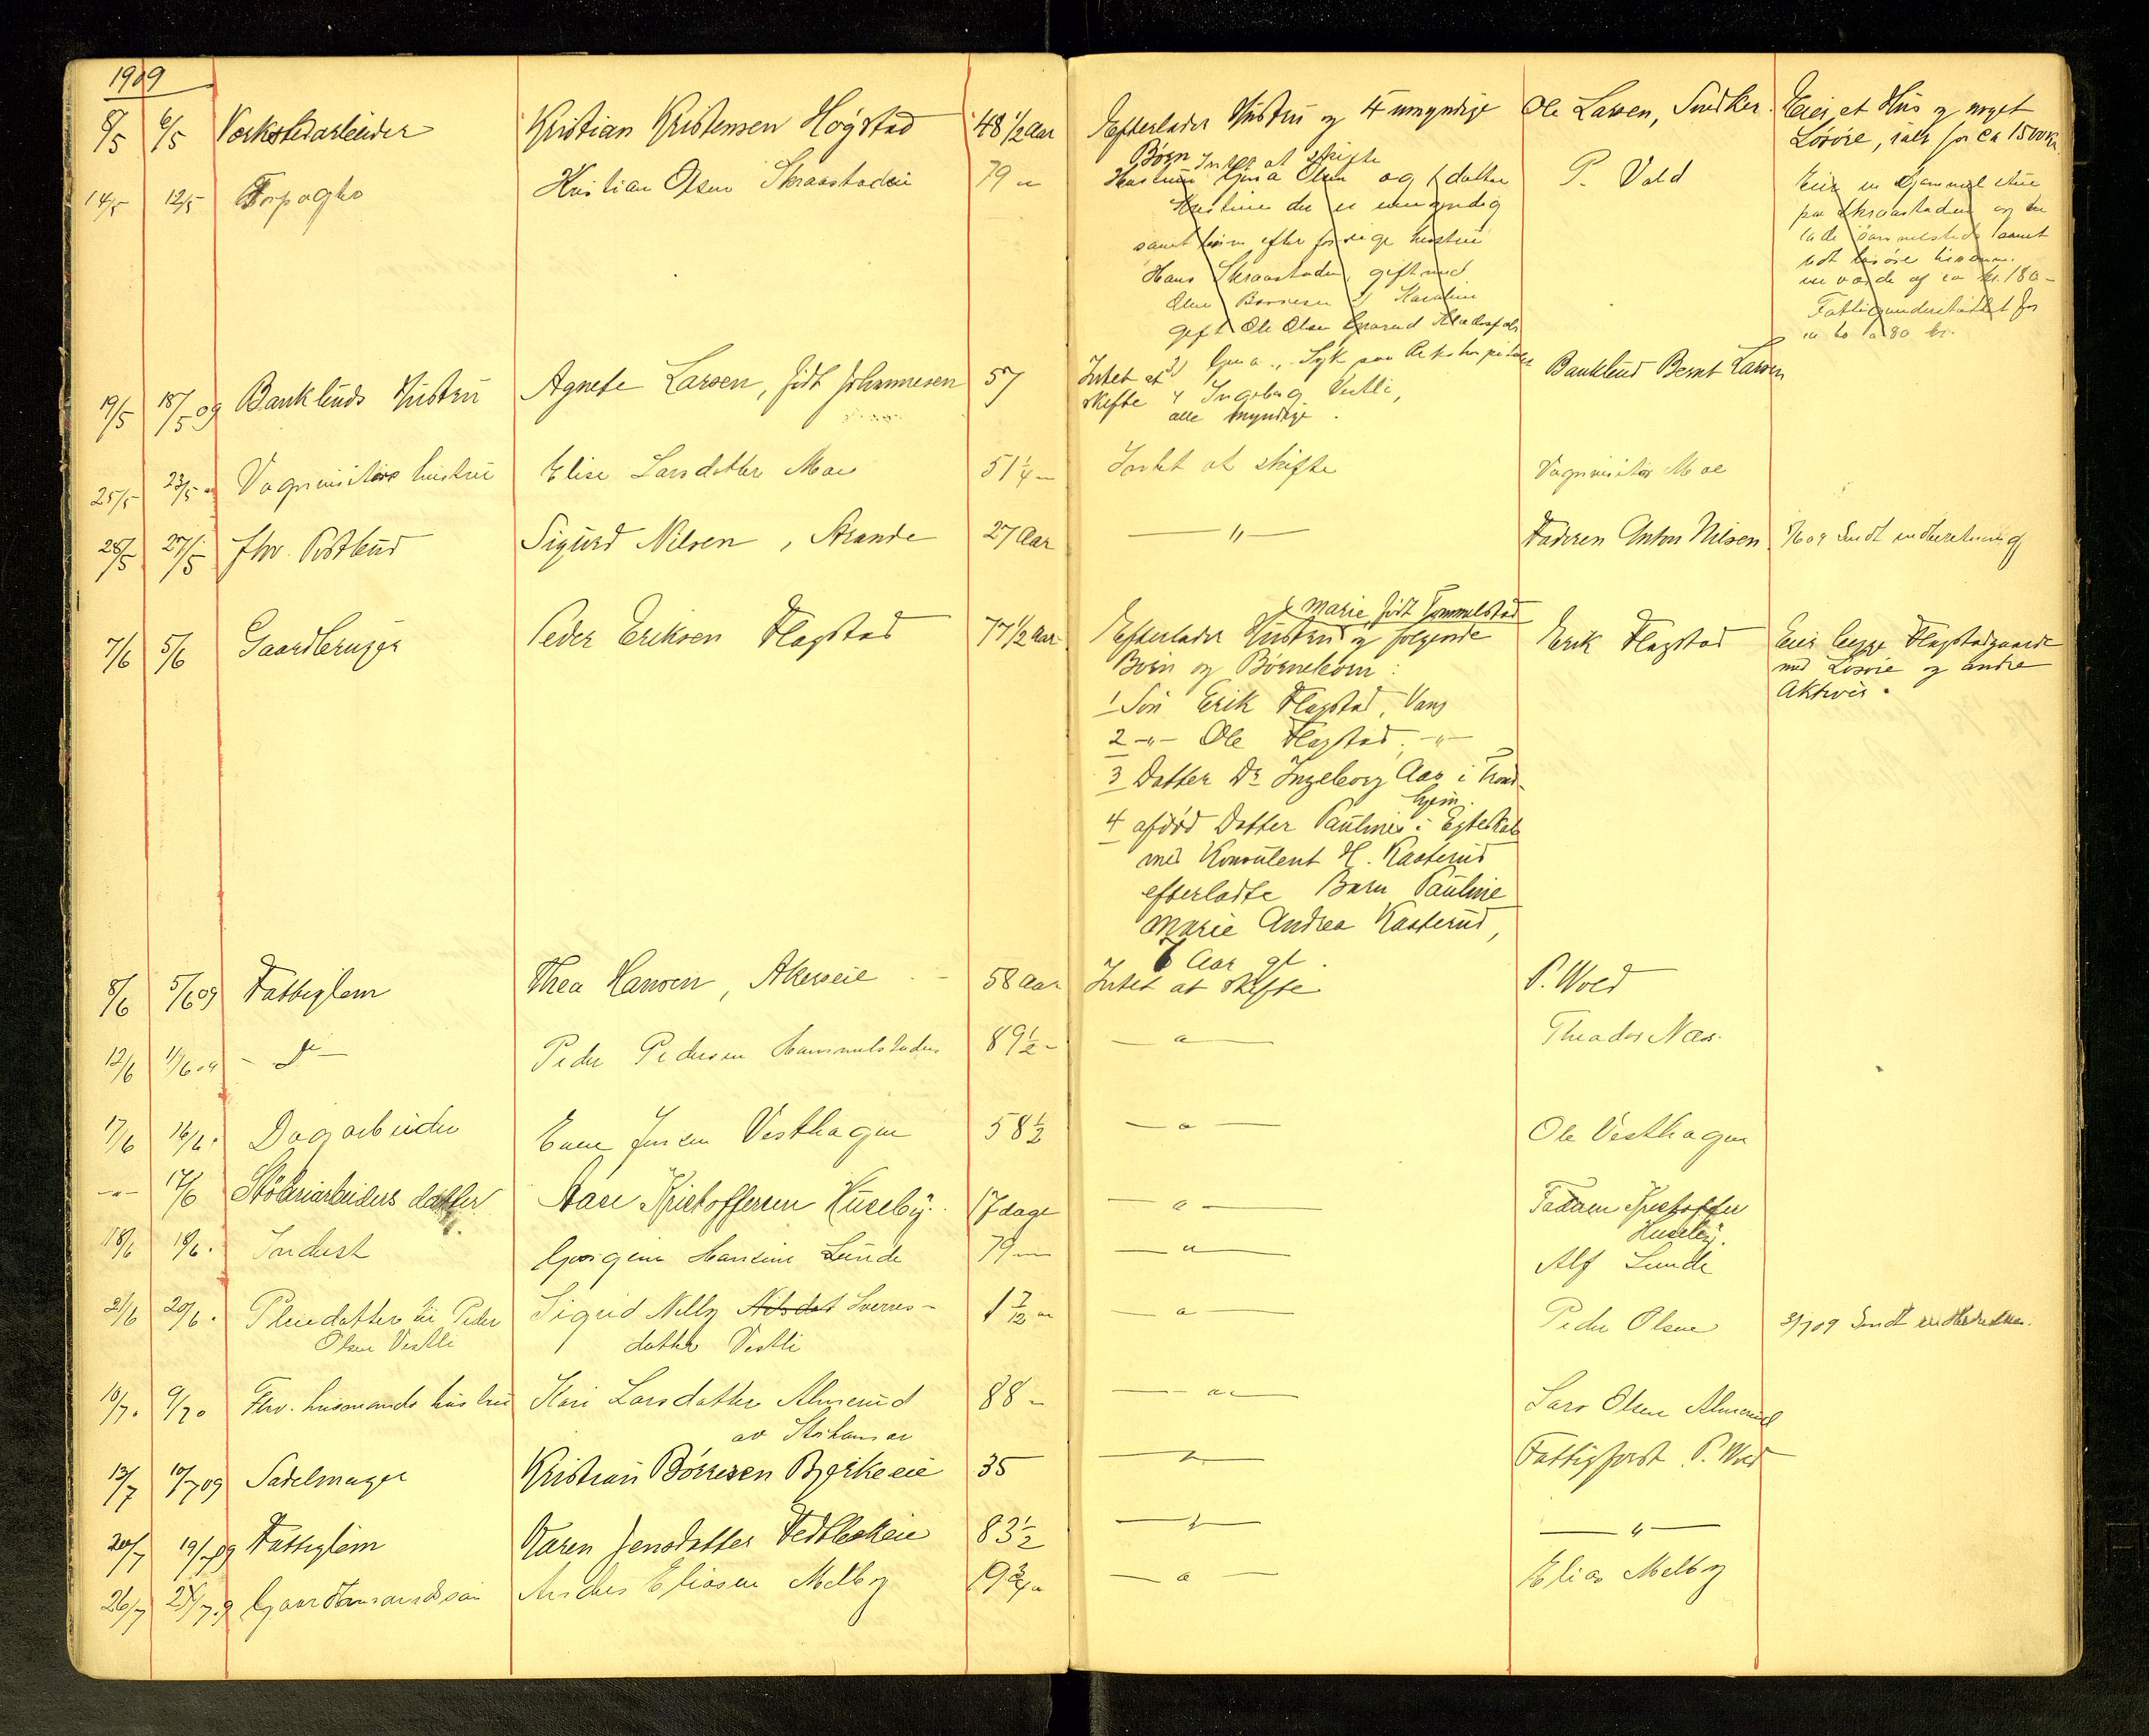 1909
8/5 6/5 Verkstedarbeider Kristian Kristensen Høgstad 48 1/2 Aar Efterlader Hustru og 4 umyndige Ole Larsen, Snedker. Eier et Hus og noget
Børn Intet at skifte Løsøre, ialt for ca 1500 kr.
14/5 12/5 Forpagter Kristian Olsen Skraastadeie 79 " Hustru Gina Olsen og 1 datter P. Vold Eier en gammel stue
Kristine der er umyndig paa Skraastadeie og en
samt børn efter forrige hustru lade sammesteds samt
Hans Skraastadeie gift med lidt løsøre
Olsen en værde af ca kr. 180 -
gift Ole Olsen Fattigunderstøttet for
ca 60 a 80 kr.
19/5 18/5 09 Bankbuds Hustru Agnete Larsen, født Johannesen 57 Intet at Bankbud Bernt Larsen
skifte 4 Ingeborg Vestli,
alle myndige.
25/5 23/5 " Vognvisitørs hustru Elise Larsdatter Moe 51 1/4 " Intet at skifte Vognvisitør Moe
28/5 27/5 fhv. Postbud Sigurd Nilsen, Strande 27 Aar — " — Faderen Anton Nilsen. Sendt indberetning
Marie, født Tommelstad
7/6 5/6 Gaardbruger Peder Eriksen Flagstad 77 1/2 Aar Efterlader Hustru og følgende Erik Flagstad Eier begge Flagstadgaarde
Børn og Børnebørn: med Løsøre og andre
Aktiver.
1 Søn Erik Flagstad, Vang
2 -"- Ole Flagstad, -"-
3 Datter Dr Ingeborg Aas i Trond-
hjem.
4 afdød Datter Paulines i Egteskab
med Konsulent H. Kasterud
efterladte Barn Pauline
Marie Andrea Kasterud,
7 Aar gl.
8/6 5/6 09 Fattiglem Thea Hansen, Akerseie 58 Aar Intet at skifte P. Wold
12/6 11/6 09 - Do - Peder Pedersen Hammelstaden 89 1/2 " — " — Theodor Næs.
17/6 16/6. Dagarbeider Even Jensen Vesthagen 58 1/2 — " — Ole Vesthagen
-"- 17/6 Støberiarbeiders datter Aase Kristoffersen Huseby. 17 dage — " — Faderen Kristoffer
Huseby.
18/6 18/6. Indust Georgine Hansine Lunde 79 " — " — Alf Lunde
21/6 20/6. Pleiedatter til Peder Sigrid Nelly Nilsdat Sverres- 1 7/12 " — " — Peder Olsen 3/7 09 Sendt
Olsen Vestli datter Vestli
10/7. 9/7. Fhv. husmands hustru Kari Larsdatter Almerud 88 " — " — Lars Olsen Almerud
av Storhamar
13/7 10/7 09 Sadelmager Kristian Børresen Bjerkeeie 35 — " — Fattigforst. P. Wold
20/7 19/7 09 Fattiglem Karen Jensdatter Vedbekeie 83 1/2 — " — — " —
26/7 24/7 9 Gaardmandssøn Anders Eliasen Melby 19 3/4 " — " — Elias Melby